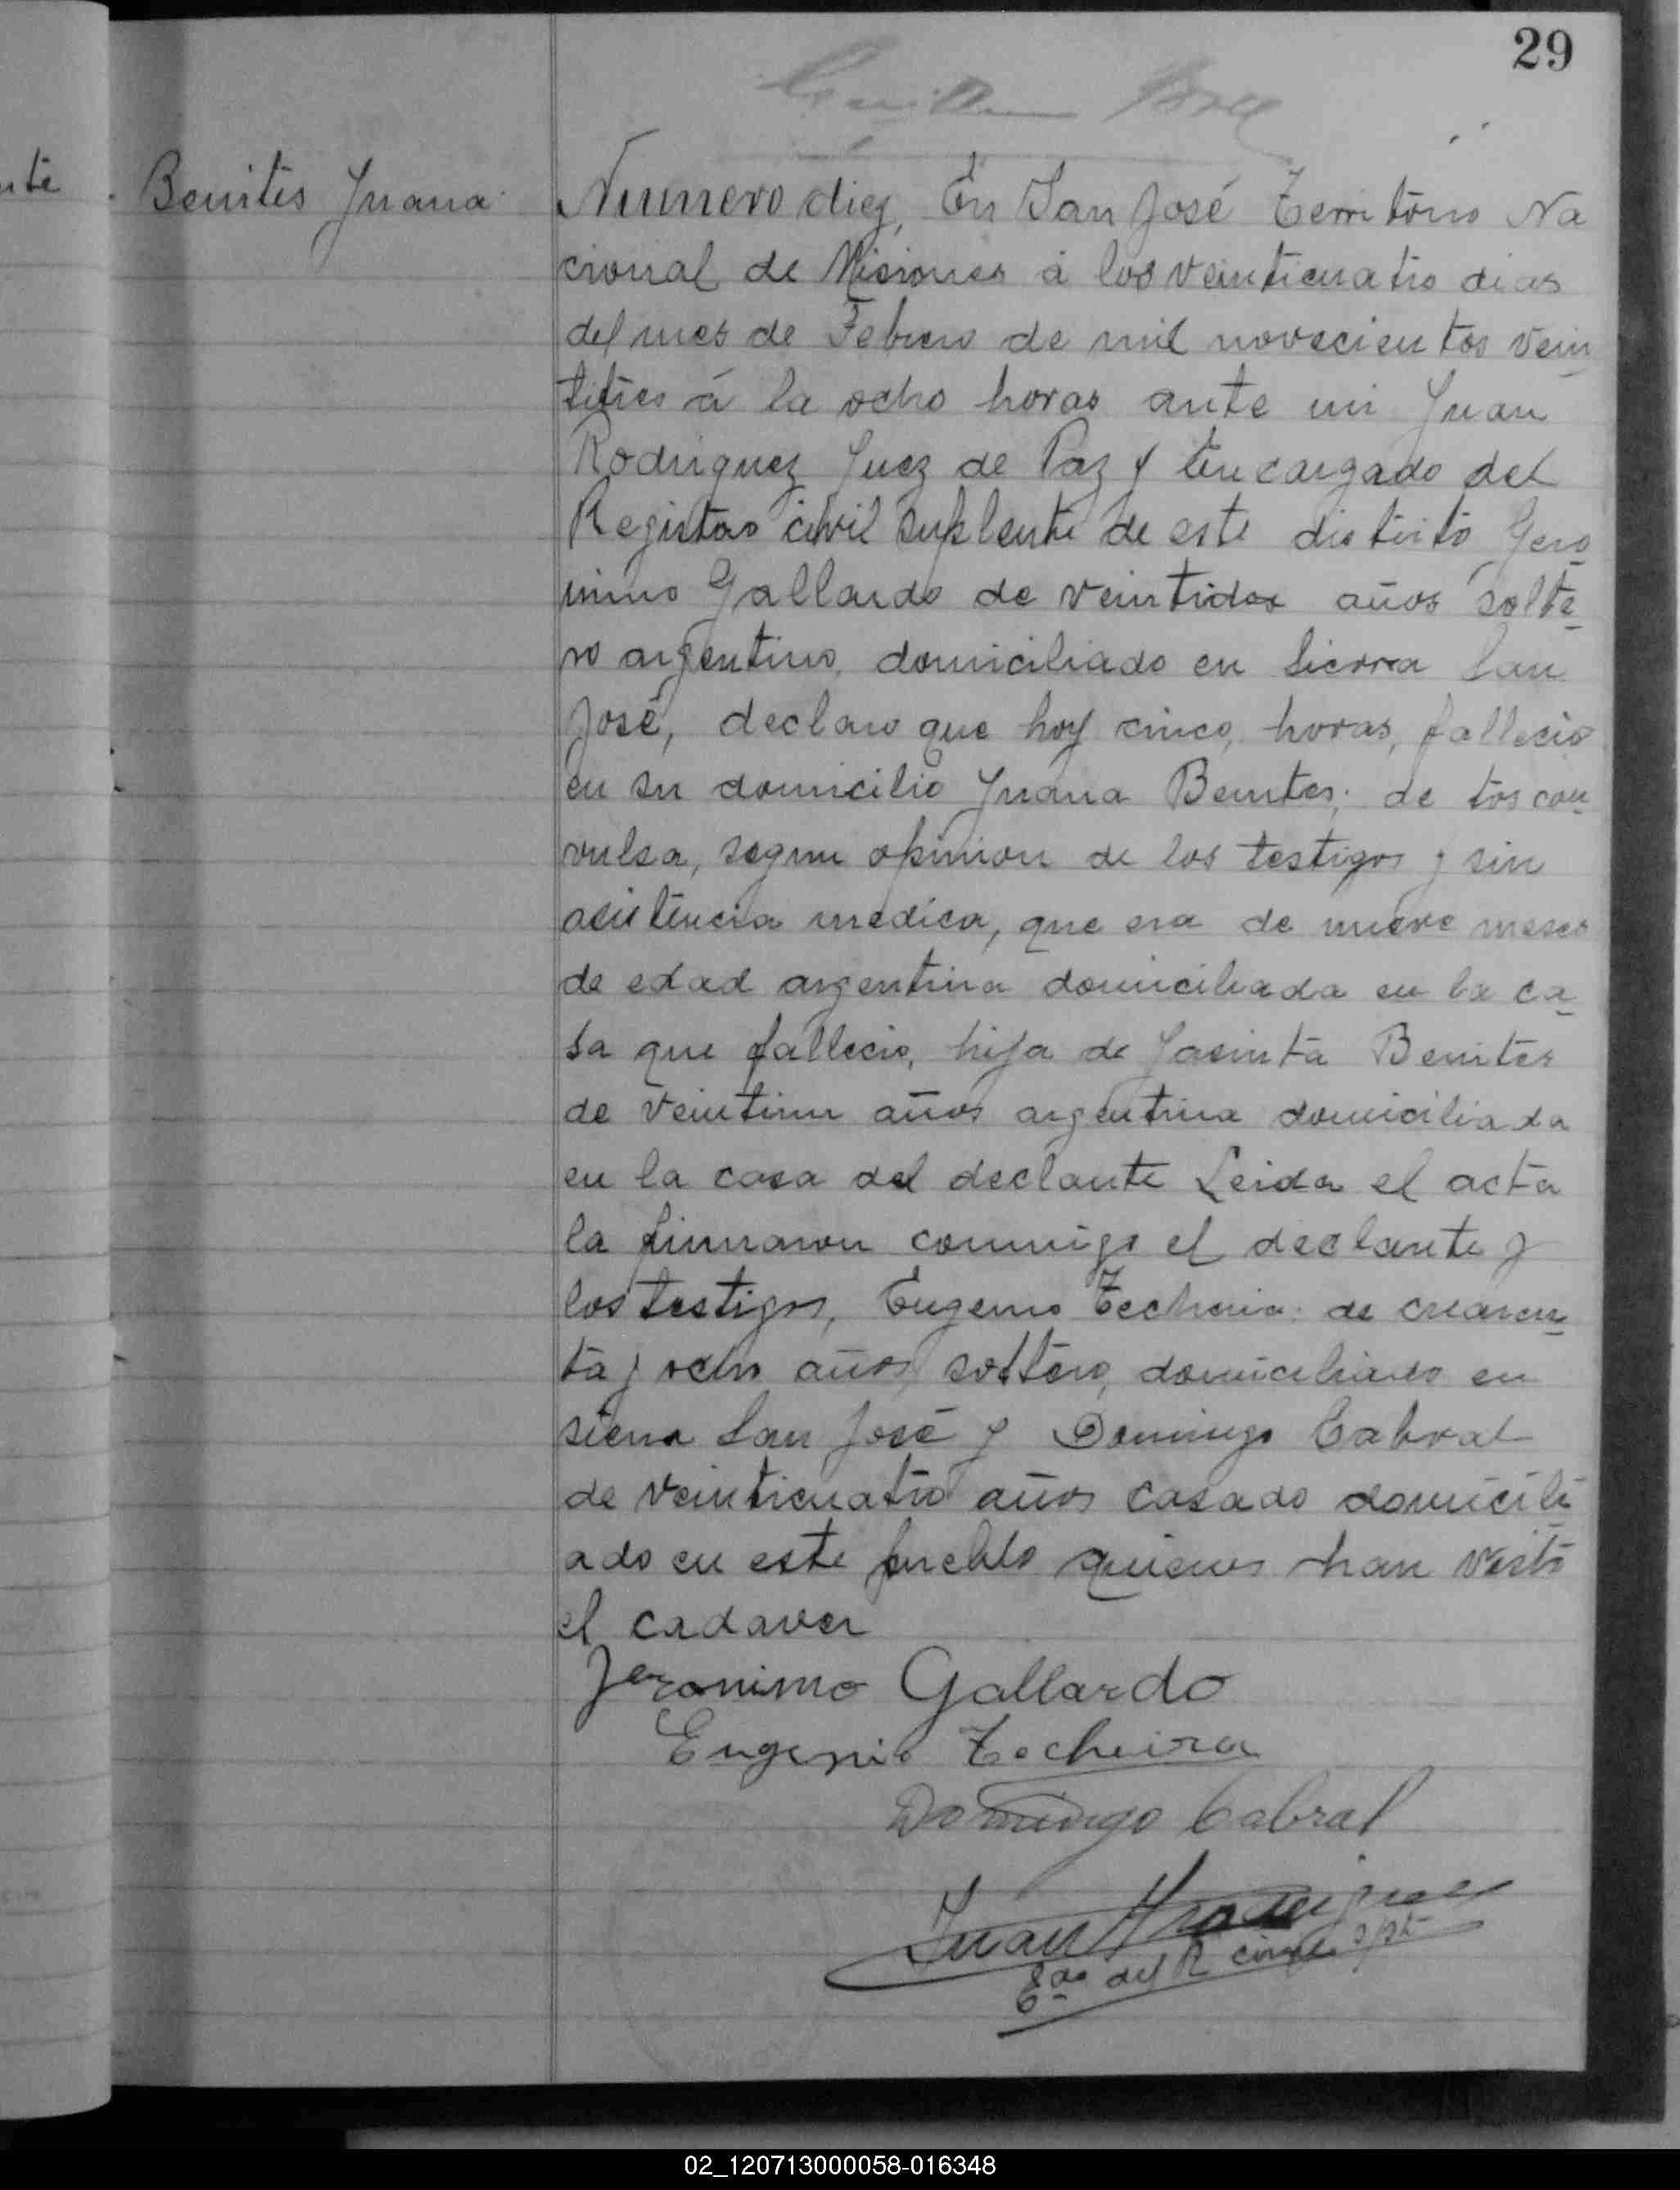 29
nte
Benites Juana
Numero diez, En San José Territorio Na
cional de Misiones á los veinticuatro dias
del mes de Febrero de mil novecientos vein
titres á la ocho horas ante mi Juan
Rodriguez Juez de Paz y Encargado del
Registro civil suplente de este distrito Gero
nimo Gallardo de veintidos años solte
ro argentino, domiciliado en Sierra San
José, declaro que hoy cinco, horas, fallecio
en su domicilio Juana Benites; de tos con
vulsa, segun opinion de los testigos y sin
asistencia medica, que era de nueve meses
de edad argentina domiciliada en la ca
sa que fallecio, hija de Jasinta Benites
de veintiun años argentina domiciliada
en la casa del declante Leida el acta
la firmaron conmigo el declante y
los testigos, Eugenio Techeria de cuaren
ta y ocho años, soltero, domiciliado en
sierra San José y Domingo Cabral
de veinticuatro años casado domicili
ado en este pueblo quienes han visto
el cadaver
Jeronimo Gallardo
Eugenio Techeira
Domingo Cabral
Juan Rodriguez
Edo del R civil
02_120713000058-016348